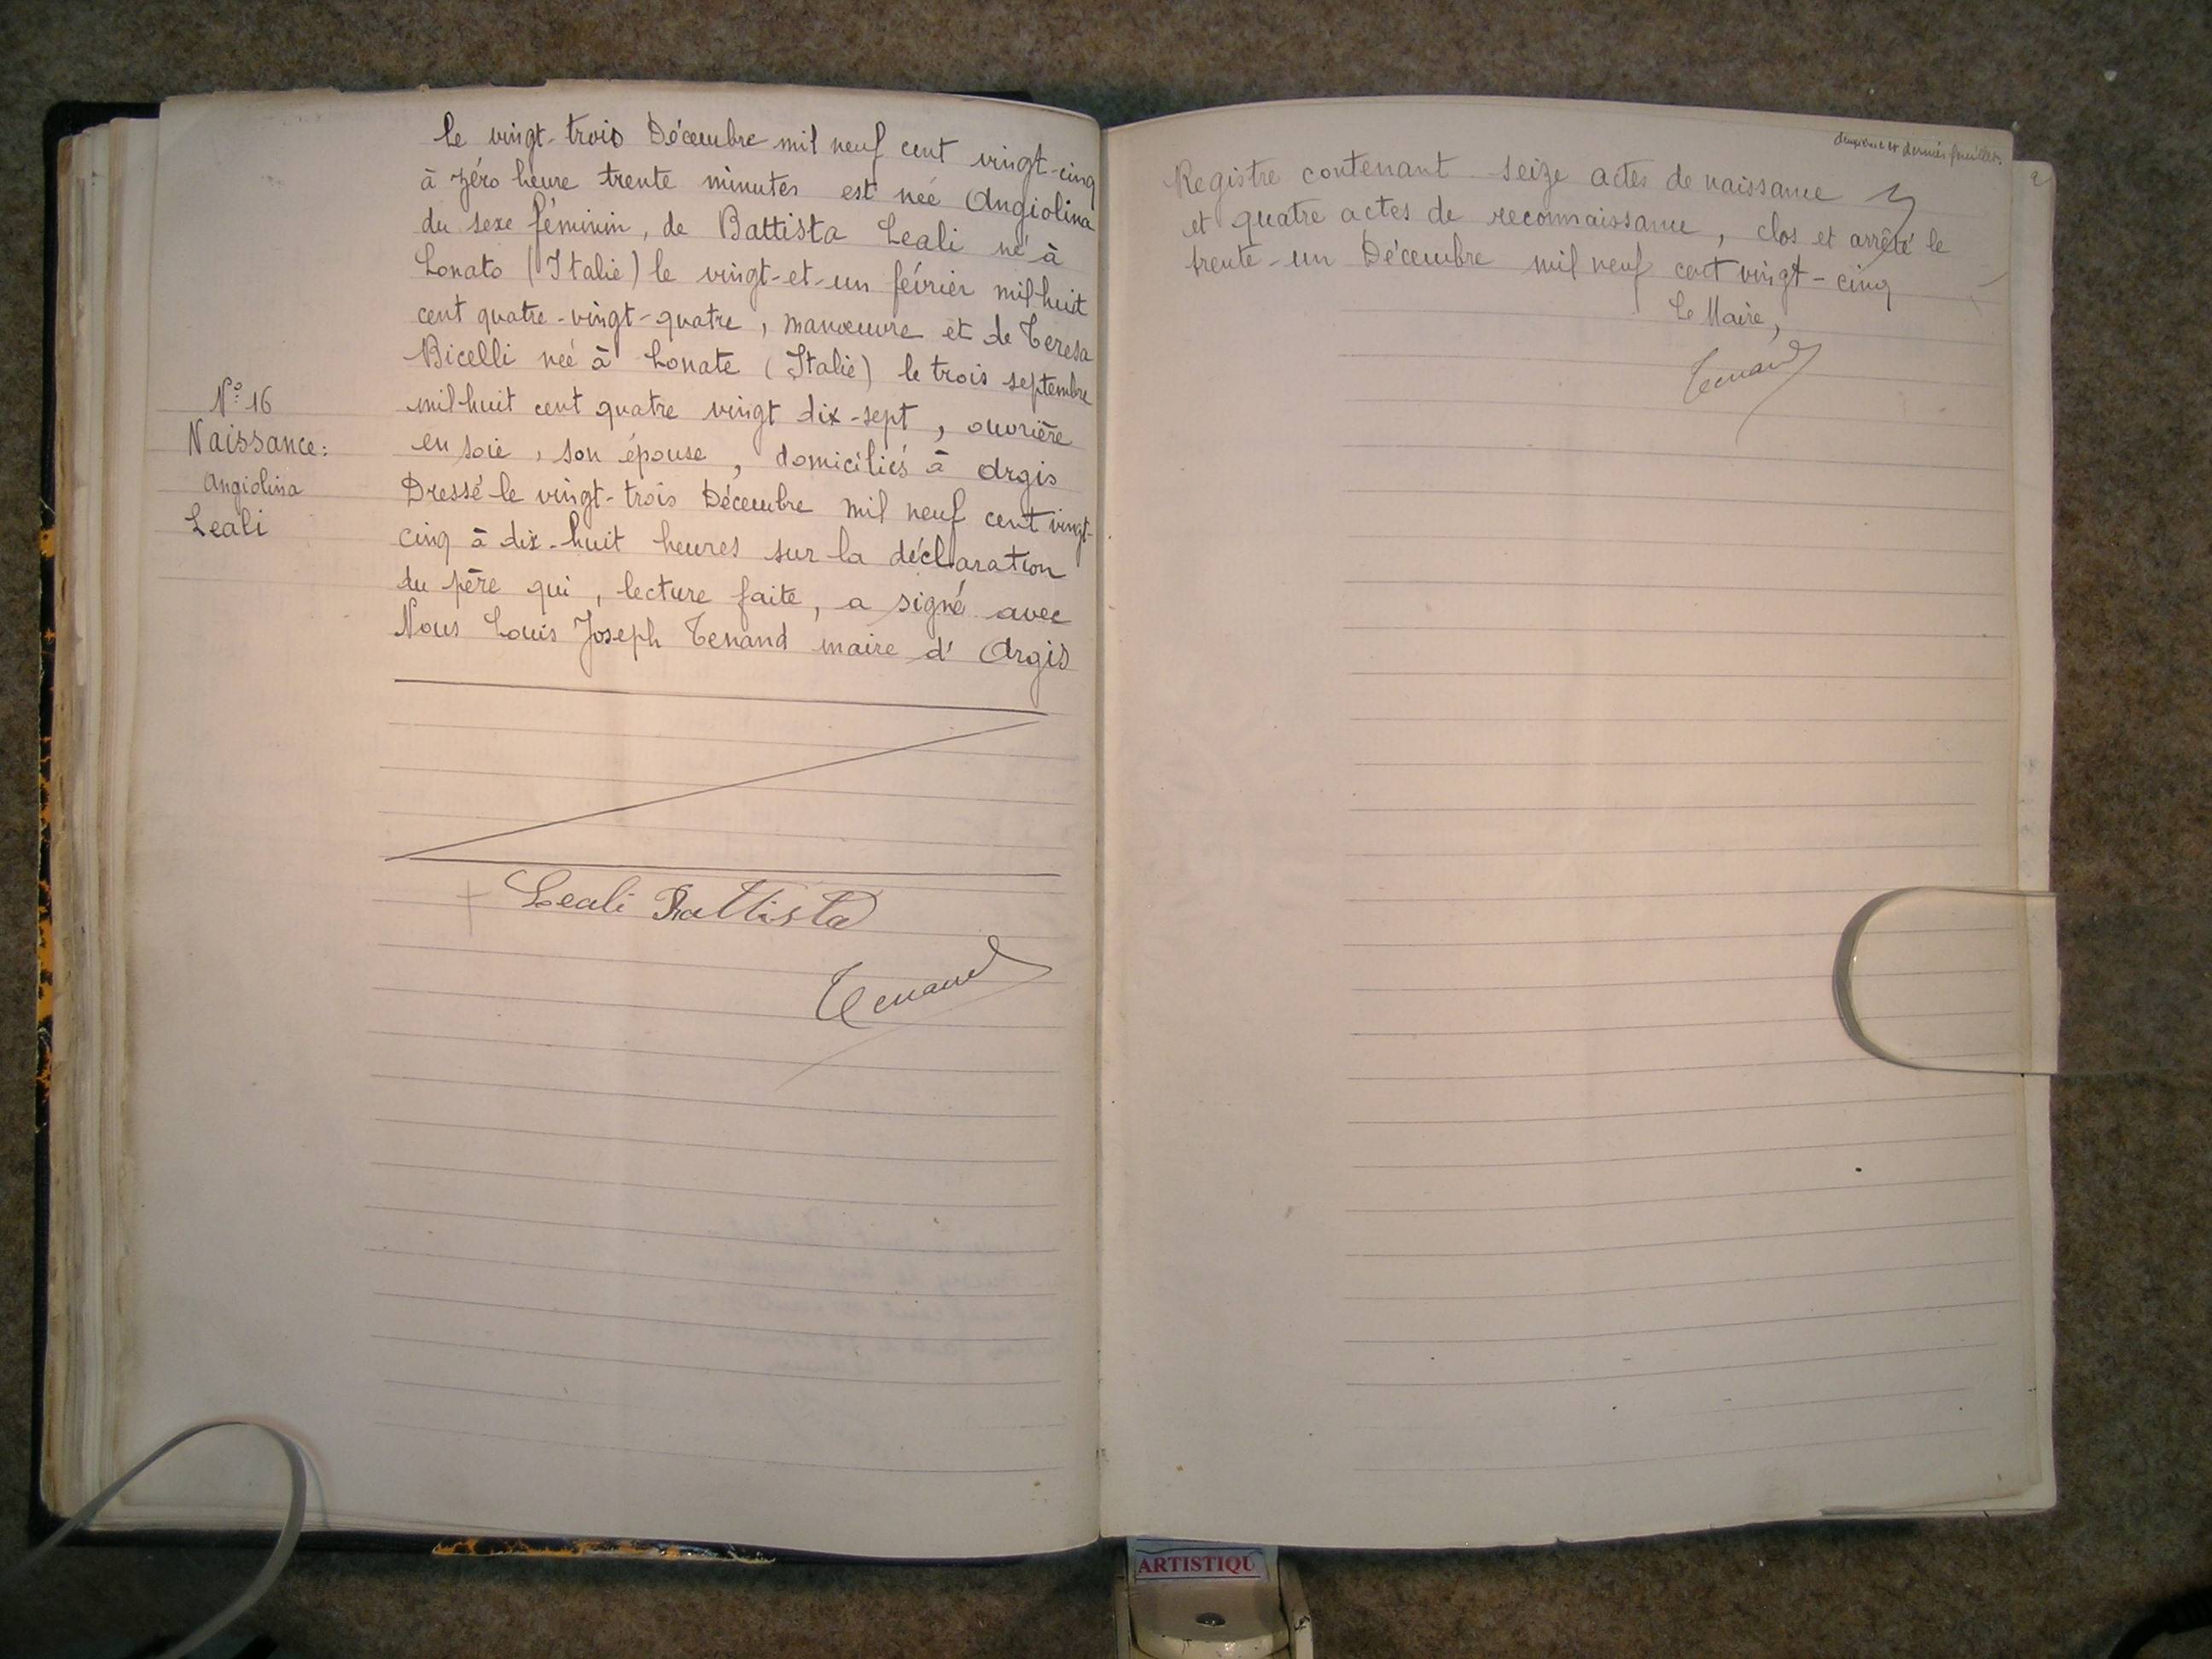 Le vingt-trois Décembre mil neuf cent vingt-cinq
à zéro heure trente minutes est née Angiolina
du sexe féminin, de Battista Leali né à
Lonato (Italie) le vingt-et-un février mil huit
cent quatre-vingt-quatre, manœuvre et de Teresa
Bicelli née à Lonate (Italie) le trois septembre
mil huit cent quatre vingt dix-sept, ouvrière
en soie, son épouse, domiciliés à Argis
Dressé le vingt-trois Décembre mil neuf cent vingt-
cinq à dix-huit heures sur la déclaration
du père qui, lecture faite, a signé avec
Nous Louis Joseph Tenand maire d'Argis
N° 16
Naissance:
Angiolina
Leali
Leali Battista
Tenand
deuxième et dernier feuillet.
Registre contenant seize actes de naissance
et quatre actes de reconnaissance, clos et arrêté le
trente-un Décembre mil neuf cent vingt-cinq
Le Maire,
Tenand
ARTISTIQU